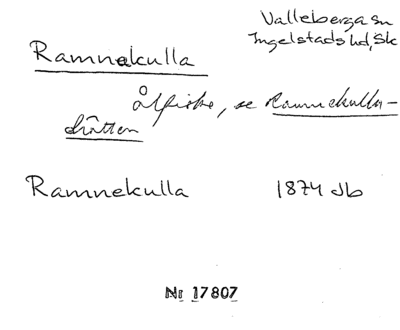 Valleberga sn
Ingelstads hd, Sk
Ramnekulla
Ålfiske, se Ramnekulla-
drätten
Ramnekulla 1874 Jb
Nr 17807